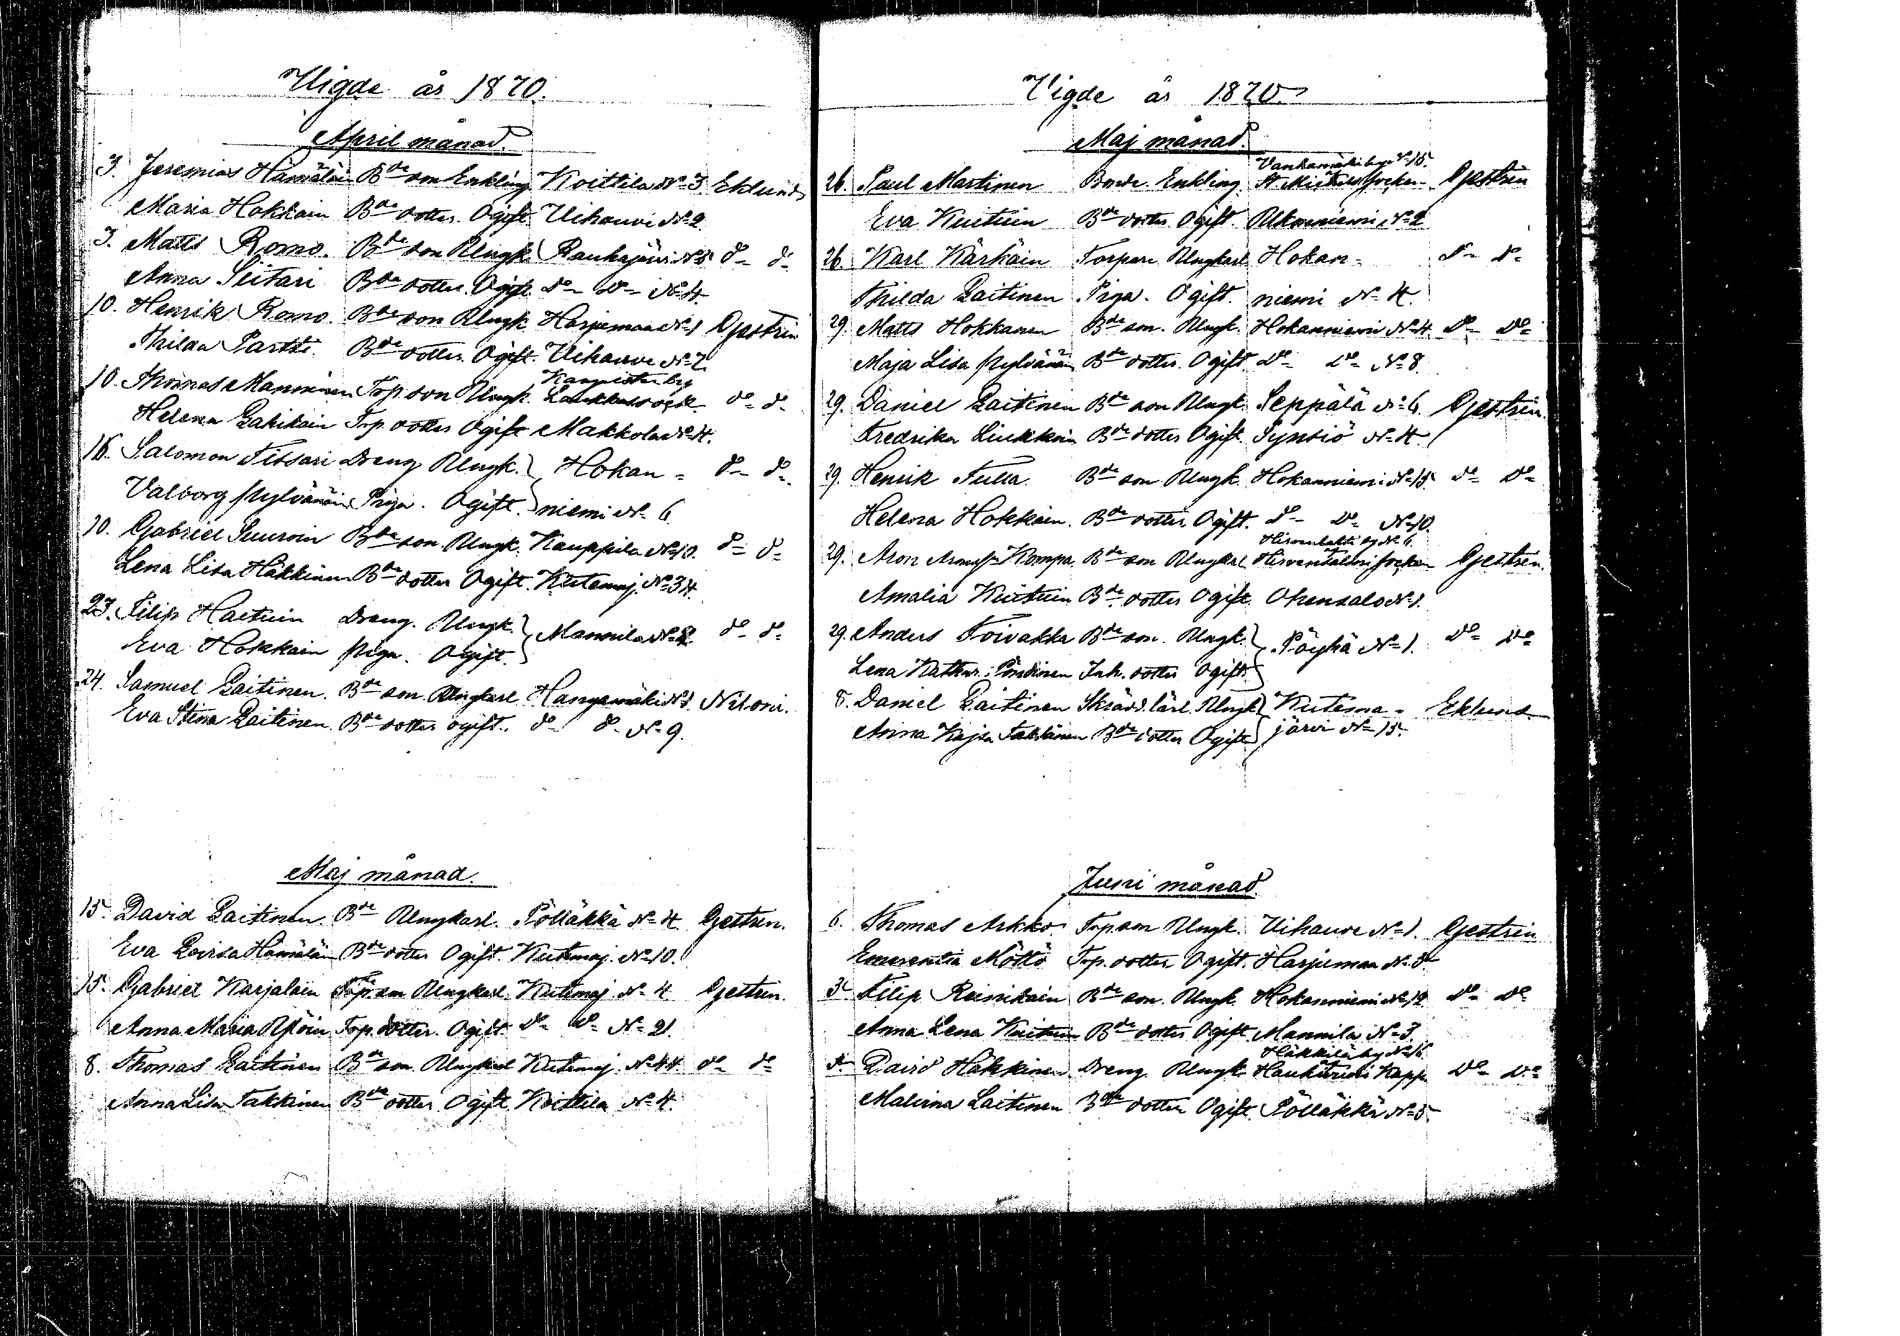 Vigde år 1870.
April månad.
3. Jeremias Hämäläin Bde son Enkling Koittila No 3. Eklund
Maria Hokkain Bde dotter Ogift Vihausu No 2.
3. Matts Romo. Bde son Ungk. Rauhajärvi No 5 do do
Anna Siitari Bde dotter Ogift do do No 4.
10. Henrik Romo. Bde son Ungk. Harjumaa No 1 Gestrin
Thilda Partti. Bde dotter. Ogift. Vihausu No 7.
10. Thomas Manninen Trp. son Ungk.
Helena Gahikain Trp. dotter Ogift Makkola No 4.
16. Salomon Tissari Dreng Ungk. Hokan- do do
Valborg Pylvänäin Piga. Ogift. niemi No 6
10. Gabriel Suuroin Bde son Ungk. Kauppila No 10. do do
Lena Lisa Häkkinen Bde dotter Ogift. Kutemaj. No 34.
23. Filip Hactuin Dreng. Ungk. Mannila No 2 do do
Eva Hokkain piga. Ogift.
24. Samuel Laitinen. Bde son. Ungkarl Hangasmäki No 1. Niloni.
Eva Stina Laitinen. Bde dotter ogift. do do No 9.
Maj månad.
15. David Laitinen. Bde Ungkarl. Pölläkkä No 4 Gestrin.
Eva Lovisa Hämäläin Bde dotter Ogift. Kutemaj. No 10.
15. Gabriel Karjalain Trp. son Ungkarl. Kutemaj No 4 Gestrin.
Anna Maria Trp. dotter. Ogift do do No 21.
8. Thomas Laitinen Bde son. Ungkarl Kutemaj. No 44 do do
Anna Lisa Takkinen Bde dotter Ogift. Koittila No 4.
Vigde år 1870.
Maj månad.
26. Paul Martinen Bonde. Enkling Vanhamäki by No 15. St. Michels socken Gestrin
Eva Kuituin Bde dotter Ogift. Ukonniemi No 2
26. Karl Kärkäin Torpare Ungkarl Hokan- do do
Thilda Laitinen Piga. Ogift. niemi No 4.
29. Matts Hokkanen Bde son. Ungk. Hokanniemi No 4. do do
Maja Lisa Pylvänäin Bde dotter. Ogift do do No 8.
29. Daniel Laitinen Bde son Ungk. Seppälä No 6. Gestrin.
Fredrika Liukkoin Bde dotter Ogift. Synsiö No 4.
29. Henrik Tulla. Bde son Ungk. Hokanniemi No 15. do do
Helena Hokkain. Bde dotter Ogift. do do No 10.
29. Aron Kompa Bde son Ungkarl Hirvensalmi socken Gestrin.
Amalia Kuituin Bde dotter Ogift Ohensalo No 1.
29. Anders Toivakka Bde son. Ungk. Pöyhä No 1. do do
Lena Inh. dotter Ogift.
8. Daniel Laitinen Skrädd. lärl. Ungk. Kutema- Eklund
Anna Kajsa Takkinen Bde dotter Ogift järvi No 15.
Juni månad.
6. Thomas Arkko Trp son Ungk. Vihausu No 1. Gestrin
Möttö Trp. dotter Ogift. Harjumaa No 3.
3. Filip Reinikain Bde son. Ungk. Hokanniemi No 12 do do
Anna Lena Kuituin Bde dotter Ogift Mannila No 3.
David Häkkinen. Dreng. Ungk. Häkkilä by No 16. Haukivuori Kapp. do do
Malvina Laitinen Bde dotter Ogift. Pölläkkä No 5.